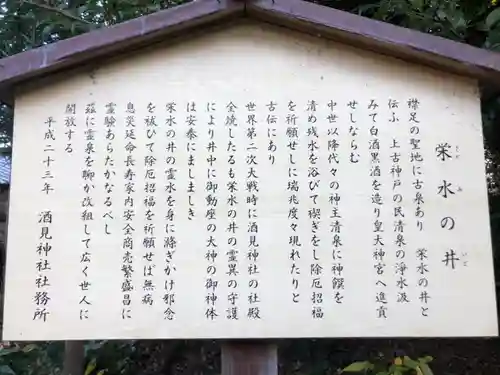 栄水の井
さかみのいど
襟足の聖地に古泉あり　栄水の井と
伝ふ　上古神戸の民清泉の浄水汲
みて白酒黒酒を造り皇大神宮へ進貢
せしならむ
中世以降代々の神主清泉に神饌を
清め残水を浴びて禊ぎをし除厄招福
を祈願せしに瑞兆度々現れたりと
古伝にあり
世界第二次大戦時に酒見神社の社殿
全焼したるも栄水の井の霊異の守護
により井中に御動座の大神の御神体
は安泰にましましき
栄水の井の霊水を身に滌ぎかけ邪念
を祓ひて除厄招福を祈願せば無病
息災延命長寿家内安全商売繁盛昌に
霊験あらたかなるべし
茲に霊泉を聊か改組して広く世人に
開放する
平成二十三年　酒見神社社務所